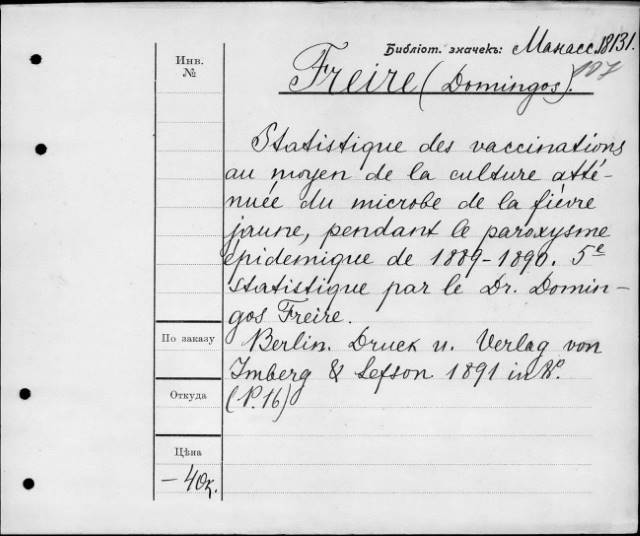 Библіот. значекъ: Манасс.18131.
107
Инв.
№
Freire (Domingos).
Statistique des vaccinations
au moyen de la culture atté-
nuée du microbe de la fièvre
jaune, pendant le paroxysme
épidemique de 1889-1890. 5e
statistique par le Dr. Domin-
gos Freire.
По заказу
Berlin. Druck u. Verlag von
Imberg & Lefson 1891 in 8o.
Откуда
(P. 16)
Цѣна
- 40к.